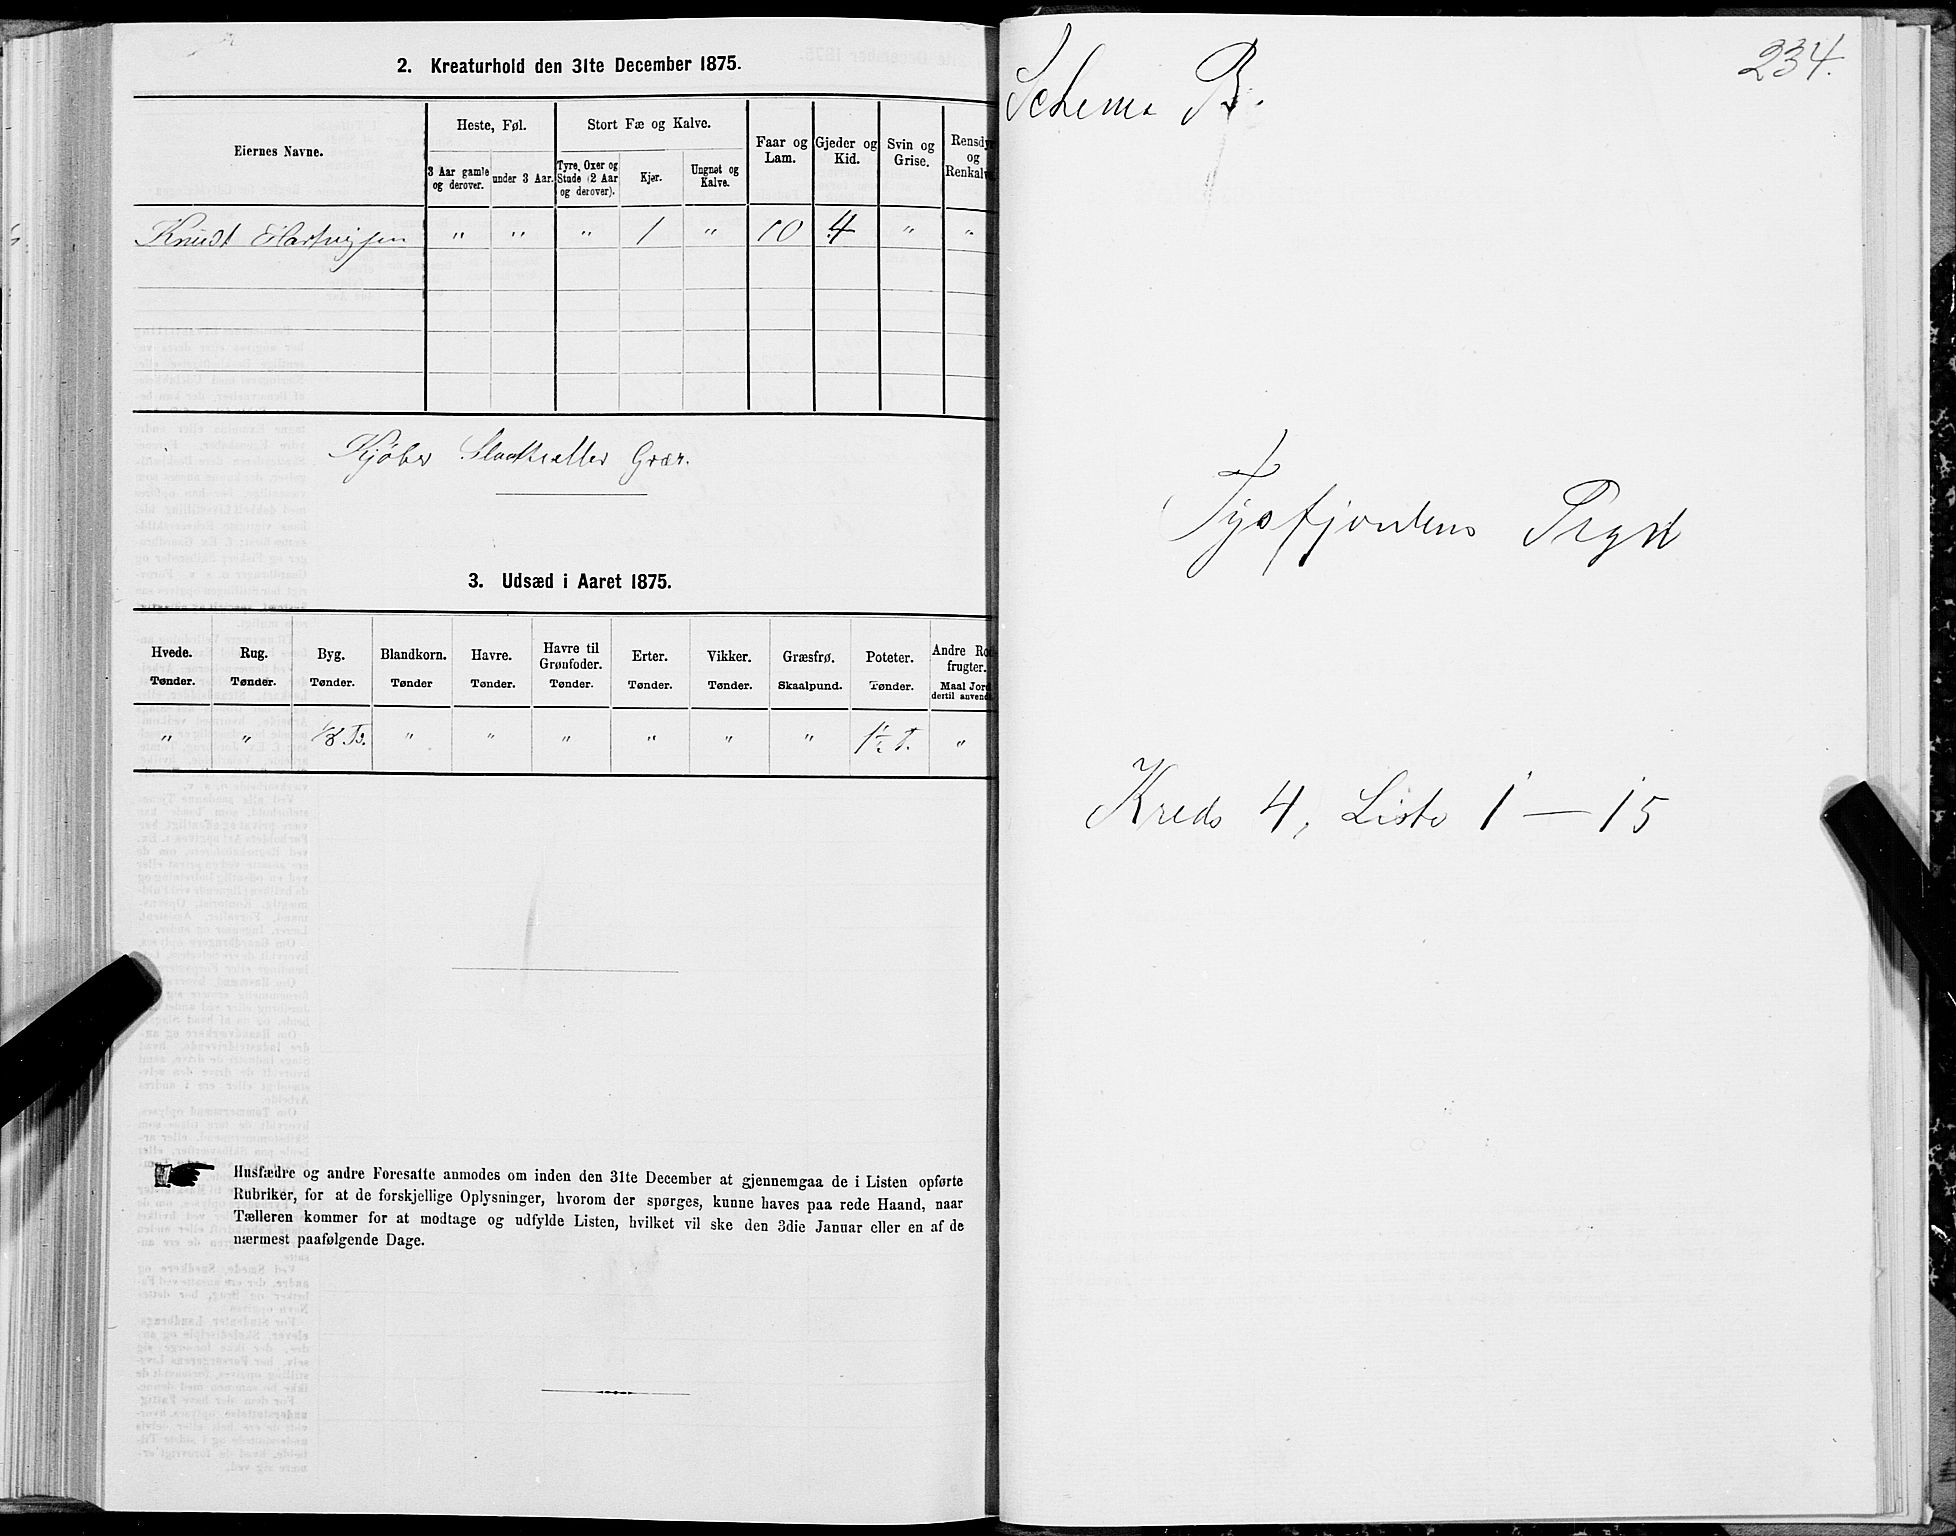 2. Kreaturhold den 31te December 1875.
Eiernes Navne.
Heste, Føl.
Stort Fæ og Kalve.
Faar og Lam.
Gjeder og Kid.
Svin og Grise.
Rensdyr og Renkalve.
3 Aar gamle og derover.
under 3 Aar.
Tyre, Oxer og Stude (2 Aar og derover).
Kjør.
Ungnøt og Kalve.
Knudt Hartvigsen " " " 1 " 10 4 " "
Kjøber Græs.
3. Udsæd i Aaret 1875.
Hvede. Rug. Byg. Blandkorn. Havre. Havre til Grønfoder. Erter. Vikker. Græsfrø. Poteter. Andre Rodfrugter.
Tønder. Tønder. Tønder. Tønder Tønder. Tønder. Tønder. Tønder. Skaalpund. Tønder. Maal Jord dertil anvendt.
" " 1/8 T. " " " " " " 1½ T. "
Husfædre og andre Foresatte anmodes om inden den 31te December at gjennemgaa de i Listen opførte
Rubriker, for at de forskjellige Oplysninger, hvorom der spørges, kunne haves paa rede Haand, naar
Tælleren kommer for at modtage og udfylde Listen, hvilket vil ske den 3die Januar eller en af de
nærmest paafølgende Dage.
234.
Schema B.
Tysfjordens Prgd
Kreds 4, Liste 1 — 15